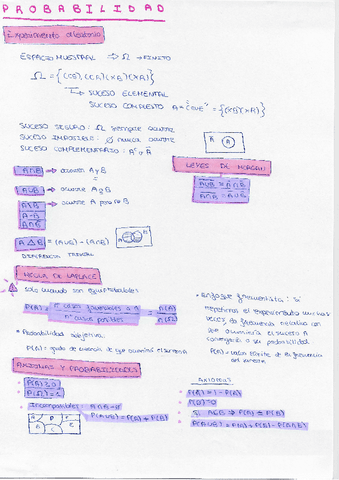 PROBABILIDAD
Experimento aleatorio
ESPACIO MUESTRAL → Ω → FINITO
Ω = {(CO), (CA), (XO), (XA)}
SUCESO ELEMENTAL
SUCESO COMPUESTO A = = {(XO), (XA)}
SUCESO SEGURO: Ω siempre ocurre
SUCESO IMPOSIBLE: Ø nunca ocurre
SUCESO COMPLEMENTARIO: Aᶜ y Ā
A
LEYES DE MORGAN
A∩B → ocurre A y B
A∪B → ocurre A y B
A\B → ocurre A pero no B
A-B
A∩B̄
A Δ B = (A∪B) - (A∩B)
A B
DIFERENCIA
REGLA DE LAPLACE
Solo cuando son equiprobables
P(A) = nº casos favorables a A / nº casos posibles = n(A) / n(Ω)
* Probabilidad subjetiva.
P(A) = grado de creencia de que ocurrirá el suceso
* Enfoque frecuentista: Si
repetimos el experimento muchas
veces, la frecuencia relativa con
que ocurriría el suceso A
convergería a su probabilidad.
P(A) = valor límite de la frecuencia
del suceso
AXIOMAS Y PROBABILIDADES
P(A) ≥ 0
P(Ω) = 1
Incompatibles: A∩B = Ø
P(A∪B) = P(A) + P(B)
P(Ā) = 1 - P(A)
P(Ø) = 0
Si A⊆B → P(A) ≤ P(B)
P(A∪B) = P(A) + P(B) - P(A∩B)